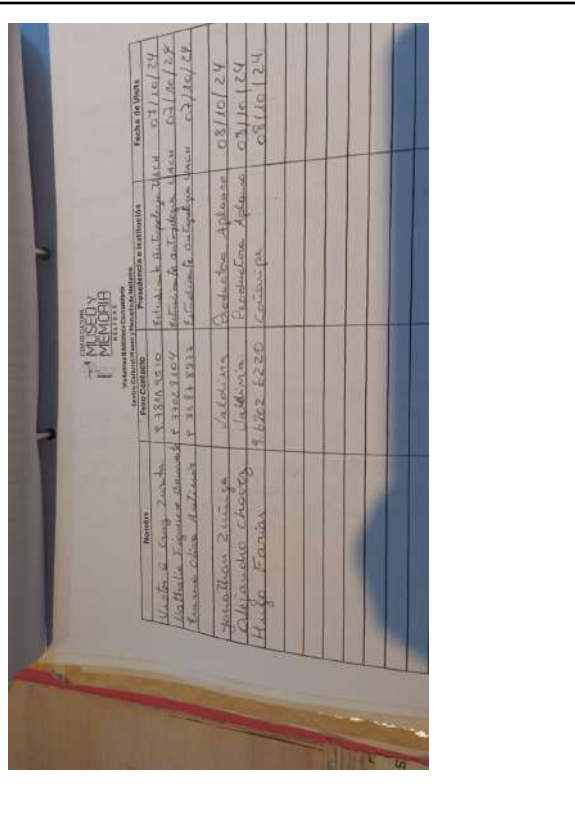 CENTRO CULTURAL
MUSEO Y
MEMORIA
NELTUME
Centro Cultural Museo y Memoria de Neltume
Nombre Fono Contacto Procedencia o Institución Fecha de Visita
Victor Cruz Zurita Estudiante Antropología UACH 07/10/24
Nathalie Figueroa 9 77029104 Estudiante antropología UACH 07/10/24
Estudiante antropología UACH 07/10/24
Jonathan Zuñiga Valdivia Productora Aplauso 08/10/24
Alejandro Chávez Valdivia Productora Aplauso 08/10/24
Hugo Farias 9.6202 6220 Coñaripe 08/10/24